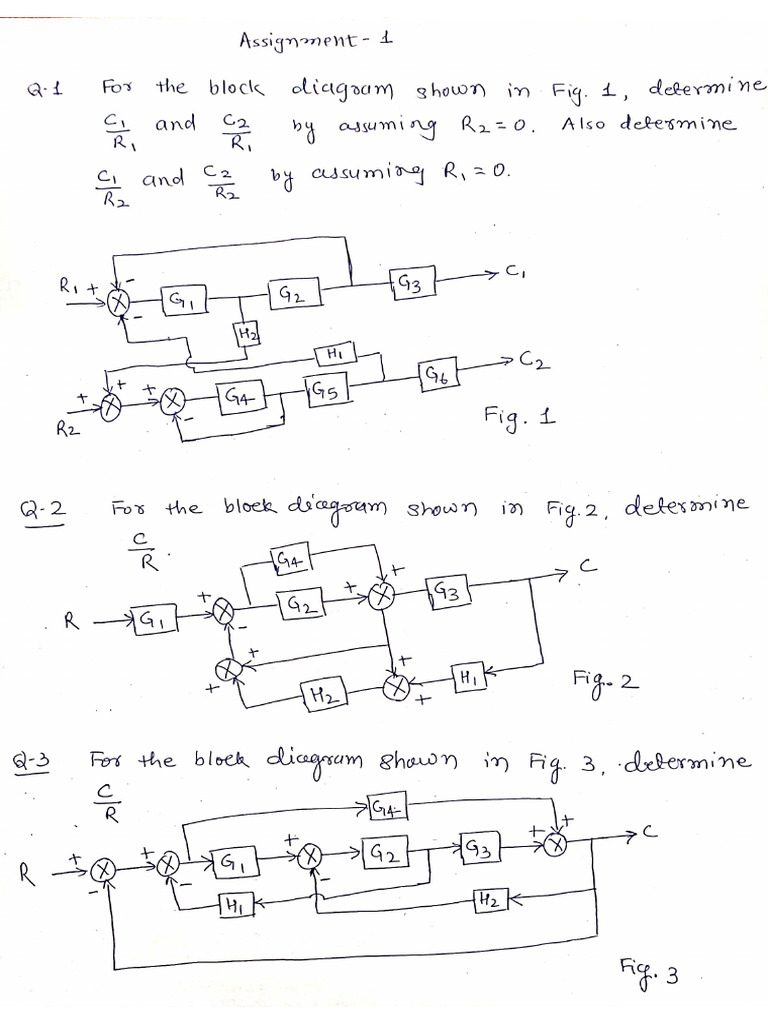 Assignment - 1
Q-1 For the block diagram shown in Fig. 1, determine
C1/R1 and C2/R1 by assuming R2 = 0. Also determine
C1/R2 and C2/R2 by assuming R1 = 0.
R1 + - - G1 G2 G3 C1
H2
H1
R2 + + + - G4 G5 G6 C2
Fig. 1
Q-2 For the block diagram shown in Fig. 2, determine
C/R.
G4
R G1 + - G2 + + G3 C
+ + + + H2 H1
Fig. 2
Q-3 For the block diagram shown in Fig. 3, determine
C/R
G4
R + - + - G1 + - G2 G3 + + C
H1 H2
Fig. 3